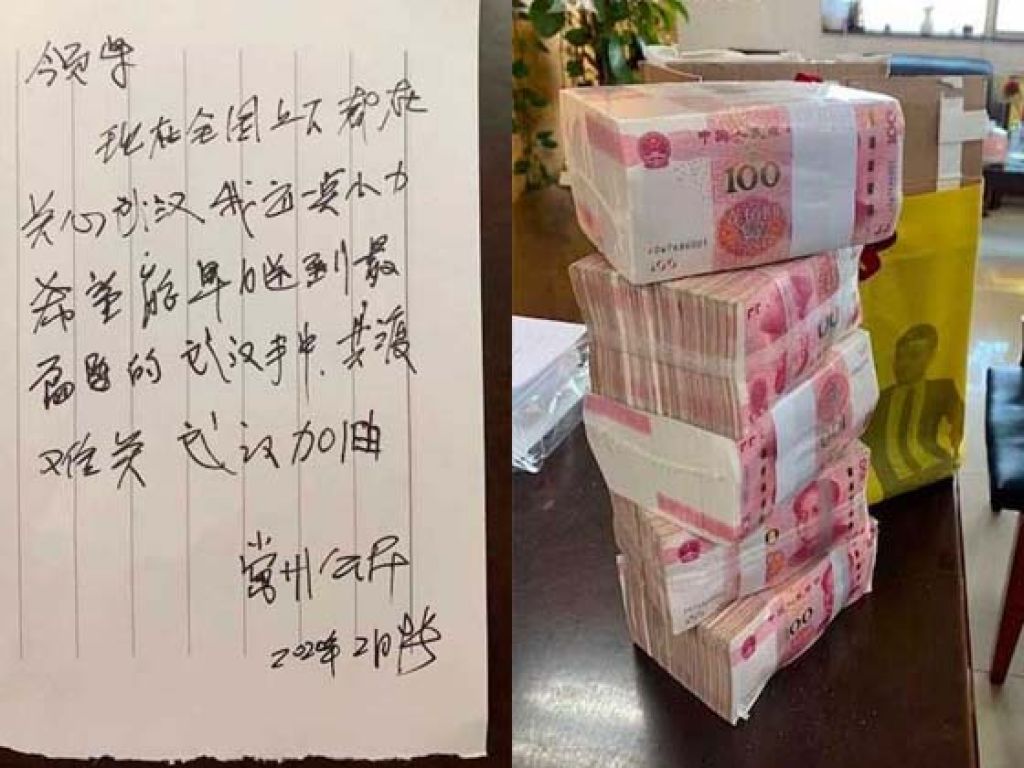 领导
现在全国上下都在
关心武汉 我
希望能早日送到最
的武汉手中.共渡
难关 武汉加油
常州
2020年2月
中国人民
100
100
100
100